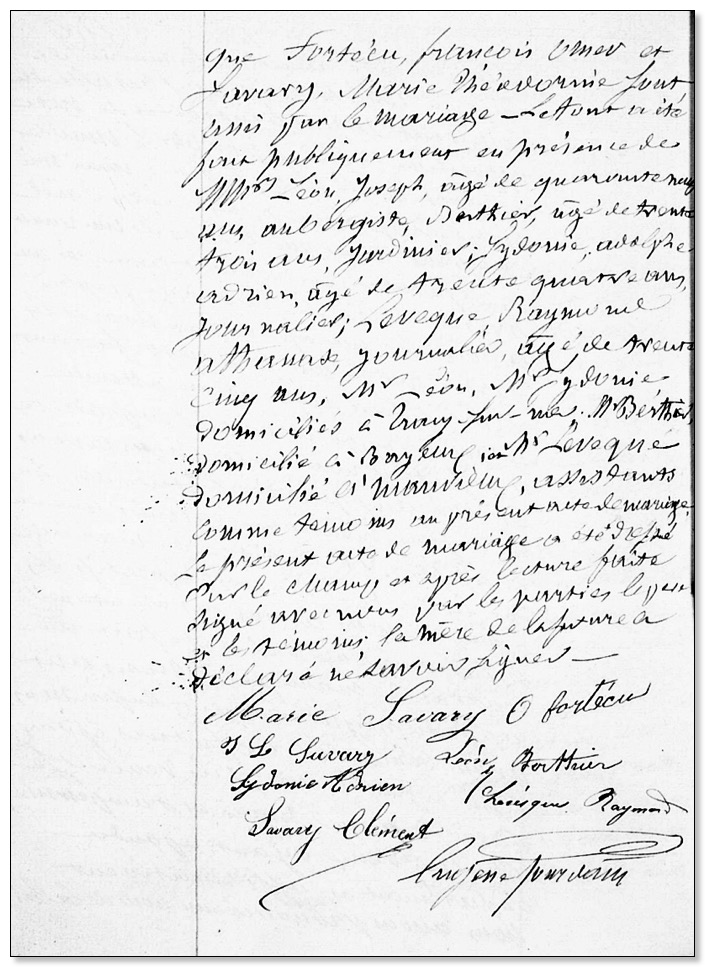 que Fortécu, françois Omer et
Savary, Marie Théodornie sont
unis par le mariage – Le tout a été
fait publiquement en présence de
MMrs Léon Joseph, âgé de quarante neuf
ans, aubergiste, Berthier, âgé de trente
trois ans, Jardinier; Sydonie, adolphe
adrien, âgé de trente quatre ans,
Journalier; Leveque Raymond
athanase, journalier, âgé de trente
cinq ans, Mr Léon, Mr Sydonie
domiciliés à Tracy-sur-mer. Mr Berthier,
domicilié à Bayeux, Mr Leveque
domicilié à Manvieux, assistants
comme témoins au présent acte de mariage.
Le présent acte de mariage a été dressé
sur le champ et après lecture faite
signé avec nous par les parties le père
et les témoins, la mère de la future a
déclaré ne savoir signer –
Marie Savary O fortécu
Savary Léon Berthier
Sydonie Adrien Levêque Raymond
Savary Clément
Eugène Jourdain